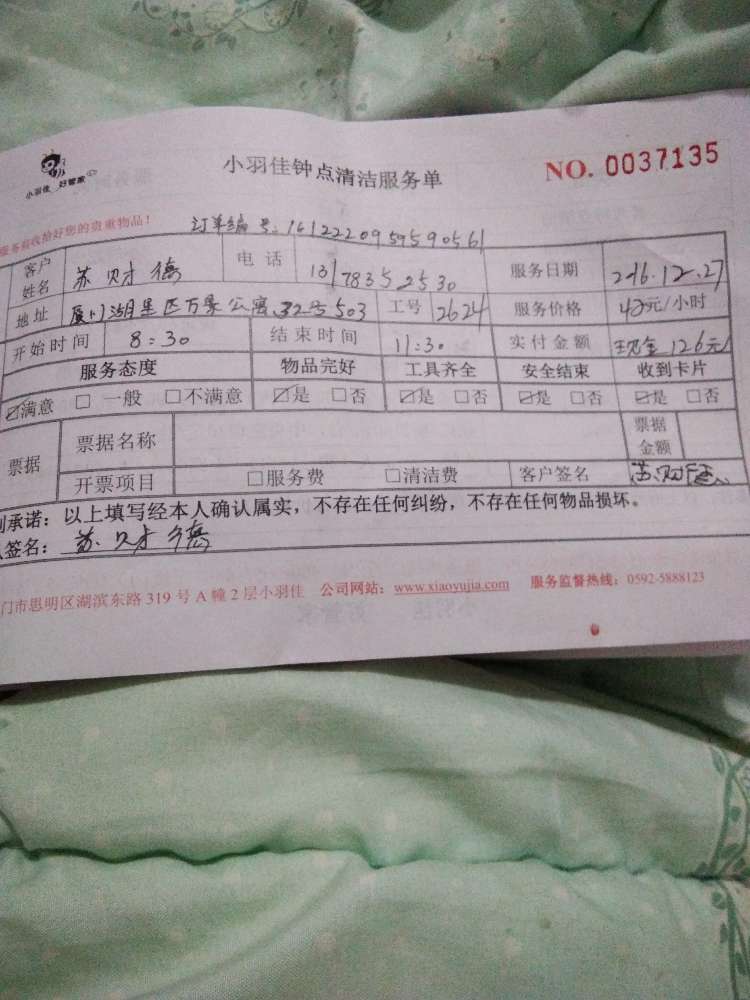 小羽佳 好管家
小羽佳钟点清洁服务单
NO. 0037135
服务前收拾好您的贵重物品！
订单编号：1612220959590561
客户姓名 苏财德 电话 13178352530 服务日期 2016.12.27
地址 厦门湖里区万景公寓32号503 工号 2624 服务价格 42元/小时
开始时间 8:30 结束时间 11:30 实付金额 现金126元
服务态度 物品完好 工具齐全 安全结束 收到卡片
☑满意 □一般 □不满意 ☑是 □否 ☑是 □否 ☑是 □否 ☑是 □否
票据 票据名称 票据金额
开票项目 □服务费 □清洁费 客户签名 苏财德
承诺：以上填写经本人确认属实，不存在任何纠纷，不存在任何物品损坏。
签名：苏财德
门市思明区湖滨东路319号A幢2层小羽佳 公司网站：www.xiaoyujia.com 服务监督热线：0592-5888123